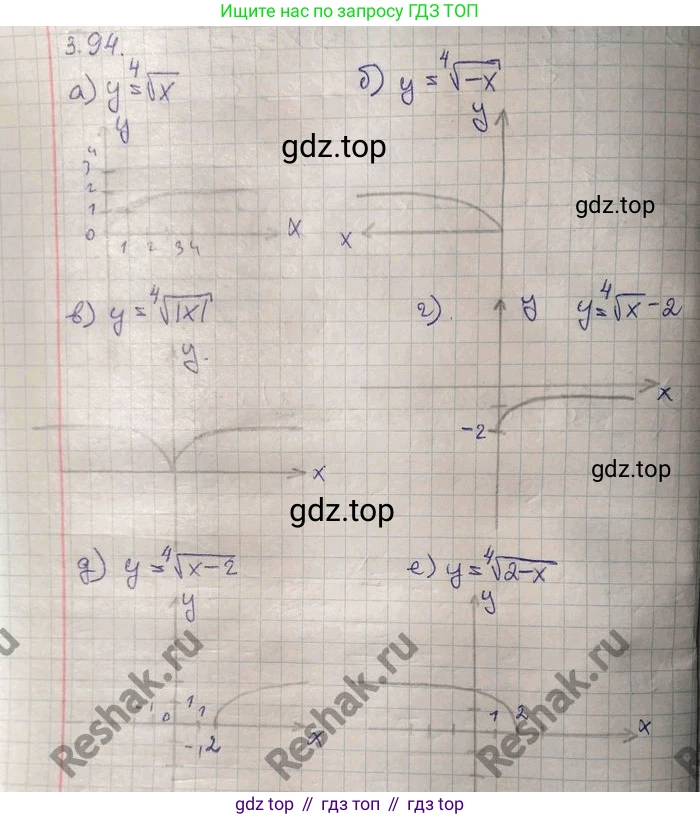 Ищите нас по запросу ГДЗ ТОП
3.94.
а) y = ⁴√x
б) y = ⁴√-x
y
y
gdz.top
4
3
2
1
0
1 2 3 4
x
x
gdz.top
в) y = ⁴√|x|
г).
y
y = ⁴√x - 2
y.
x
-2
x
gdz.top
gdz.top
д) y = ⁴√x-2
е) y = ⁴√2-x
y
y
Reshak.ru
Reshak.ru
Reshak.ru
0
1
1
2
x
1 2
x
gdz top // гдз топ // gdz top